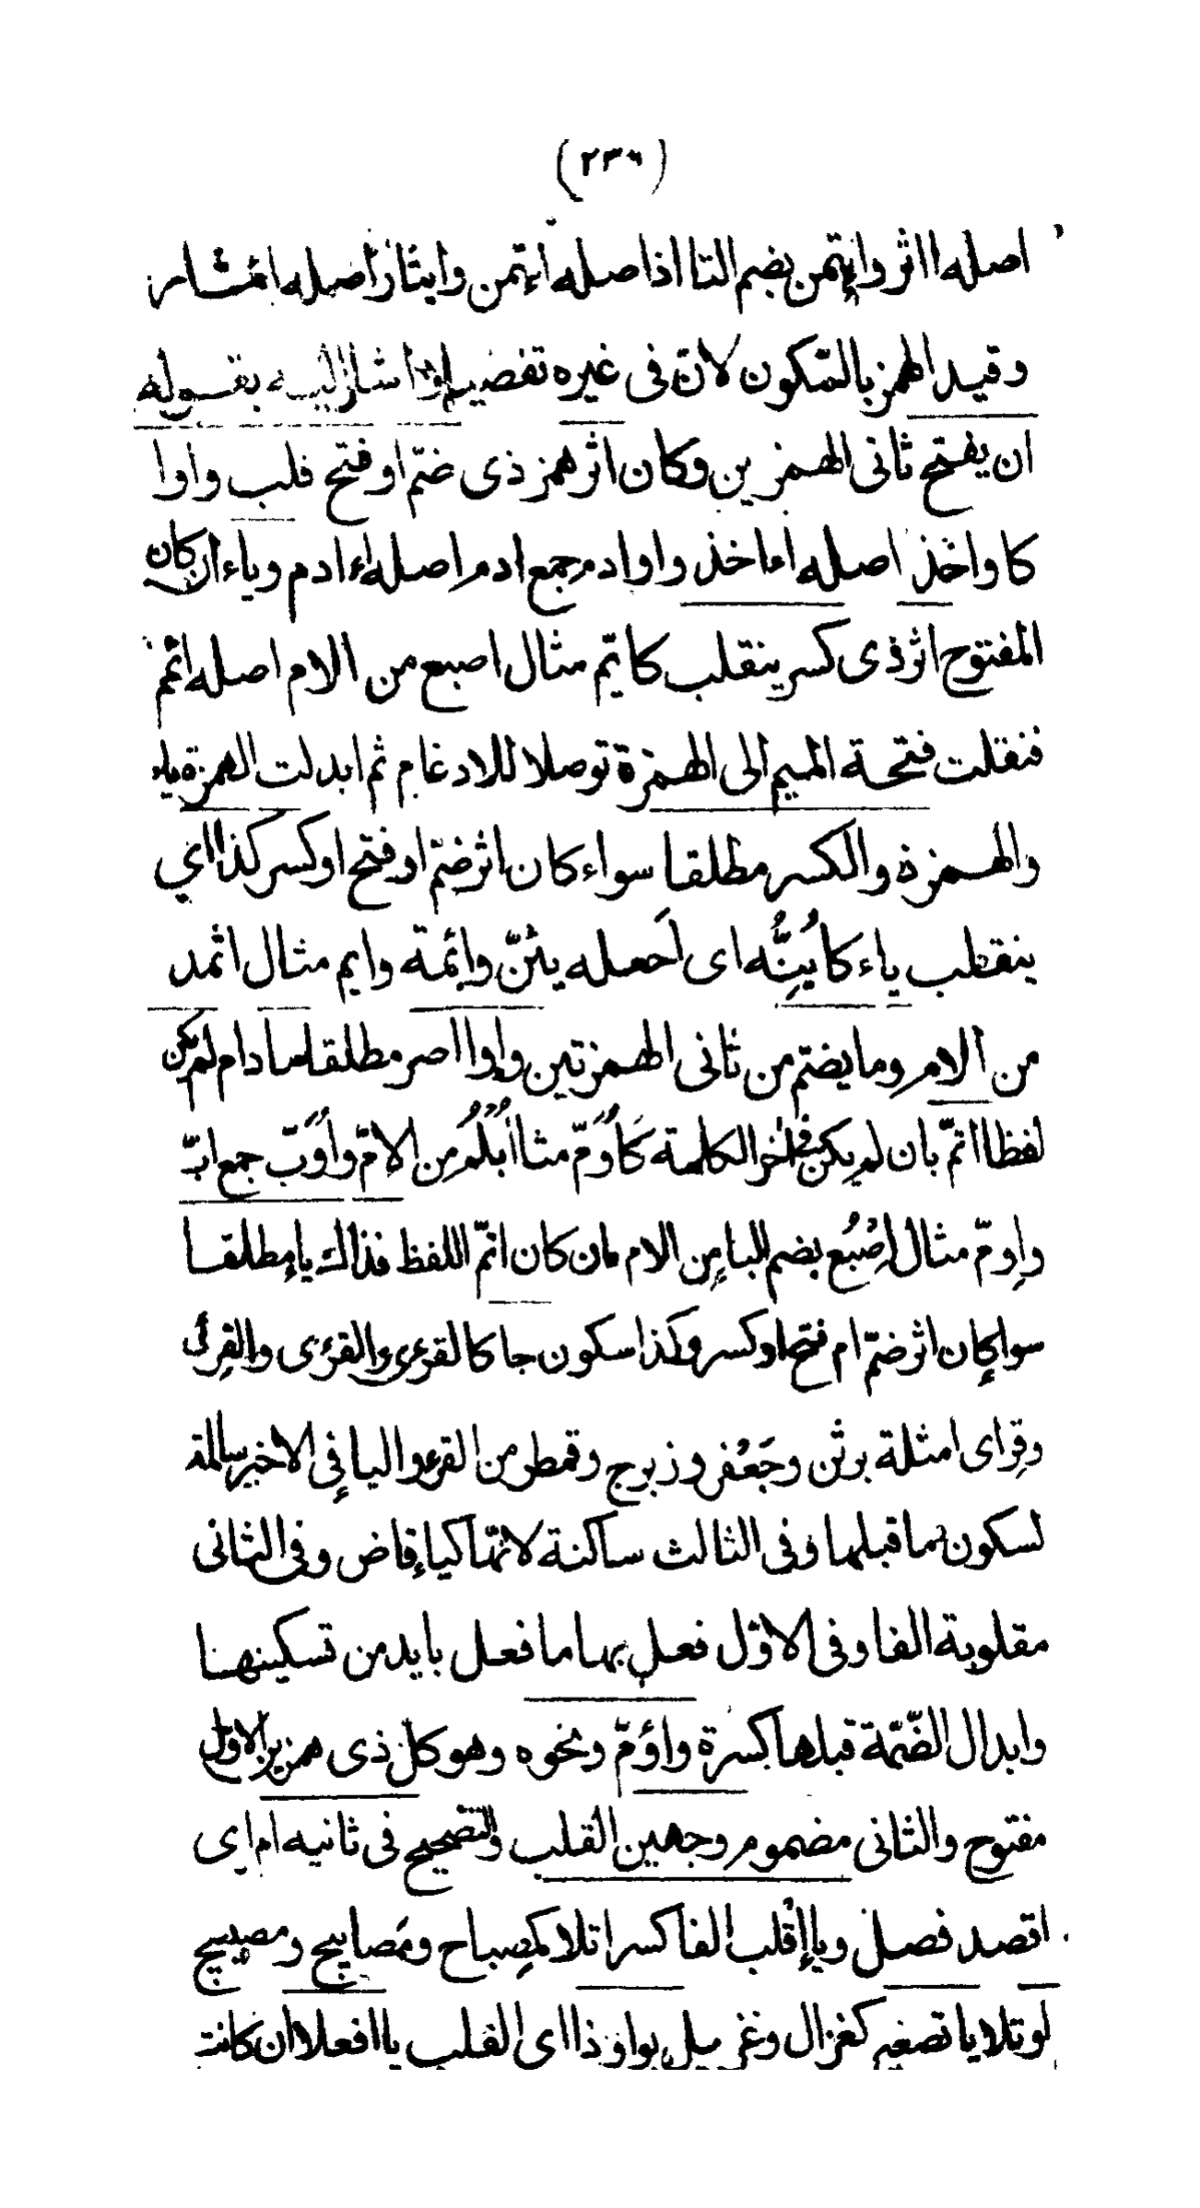 (٢٣٦)
اصله ااثر وايتمن بضم التا اذا اصله اءتمن وايثار اصله ائثار
وقيد الهمز بالسّكون لانّ فى غيره تفصيلا اشار اليه بقوله
ان يفتح ثانى الهمزين وكان اثر همز ذى ضمّ او فتح قلب واوا
كاواخذ اصله اءاخذ واوادم جمع ادم اصله اءادم وياء ان كان
المفتوح اثر ذى كسر ينقلب كايمّ مثال اصبع من الام اصله ائمم
فنقلت فتحة الميم الى الهمزة توصلا للادغام ثم ابدلت الهمزة ياء
والهمزة والكسر مطلقا سواء كان اثر ضمّ او فتح او كسر كذا اى
ينقلب ياء كاُيِنُّه اى اَجعله يئنّ وائمة وايم مثال اثمد
من الام وما يضمّ من ثانى الهمزتين واوا اصر مطلقا مادام لم يكن
لفظا اتمّ بان لم يكن فى اخر الكلمة كَاُوَمّ مثال اُبْلُم من الامّ واَوُبّ جمع ابّ
واِومّ مثال اِصْبُع بضم الباء من الام فان كان اتمّ اللفظ فذاك ياء مطلقا
سواء كان اثر ضمّ ام فتح او كسر وكذا سكون جا كالقرءى والقرءى والقِرئى
وقِراى امثلة برثن وجَعْفر وزبرج وقمطر من القرء واليا فى الاخير سالمة
لسكون ما قبلها وفى الثالث ساكنة لانّها كياء قاض وفى الثانى
مقلوبة الفا وفى الاوّل فعل بها ما فعل بايد من تسكينها
وابدال الضّمّة قبلها كسرة واؤمّ ونحوه وهو كل ذى همزين الاول
مفتوح والثانى مضموم وجهين القلب والتصحيح فى ثانيه ام اى
اقصد فصل وياء اقلب الفا كسرا تلا كمِصباح ومَصابيح ومصيبيح
او تلا يا تصغير كغزال وغزيل بواو ذا اى القلب ياا فعلا ان كانت